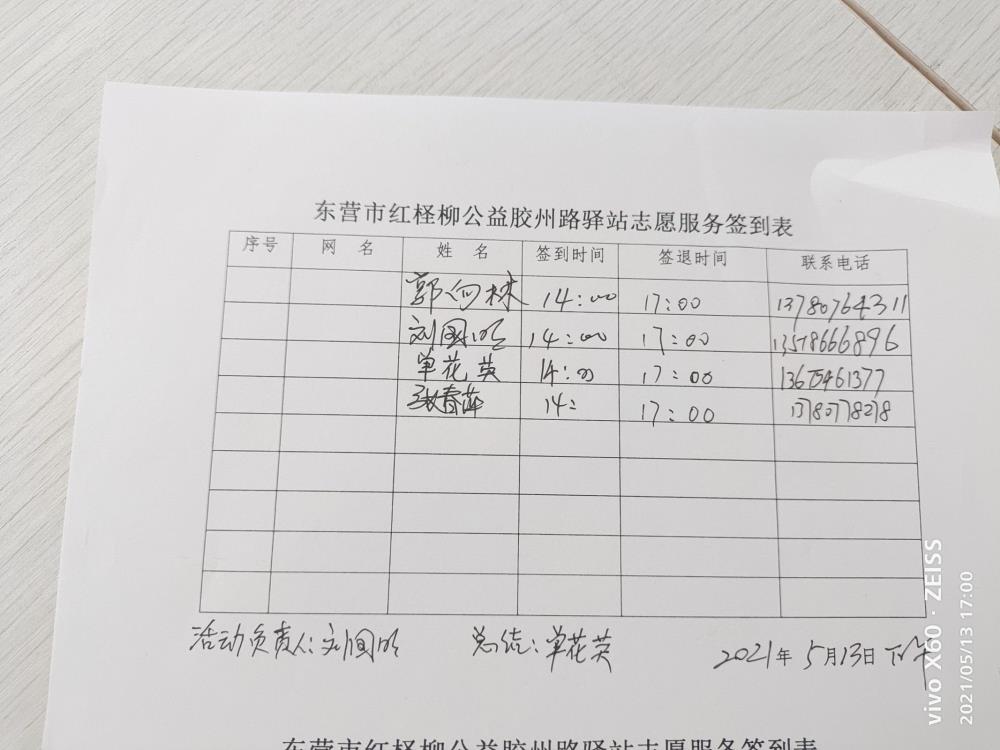 东营市红柽柳公益胶州路驿站志愿服务签到表
序号 网 名 姓 名 签到时间 签退时间 联系电话
郭向林 14:00 17:00 13780764311
刘国明 14:00 17:00 13518666896
单花英 14:00 17:00
张春萍 14: 17:00
活动负责人:刘国明 总结:单花英 2021年5月13日下午
东营市红柽柳公益胶州路驿站志愿服务签到表
vivo X60 · ZEISS
2021/05/13 17:00